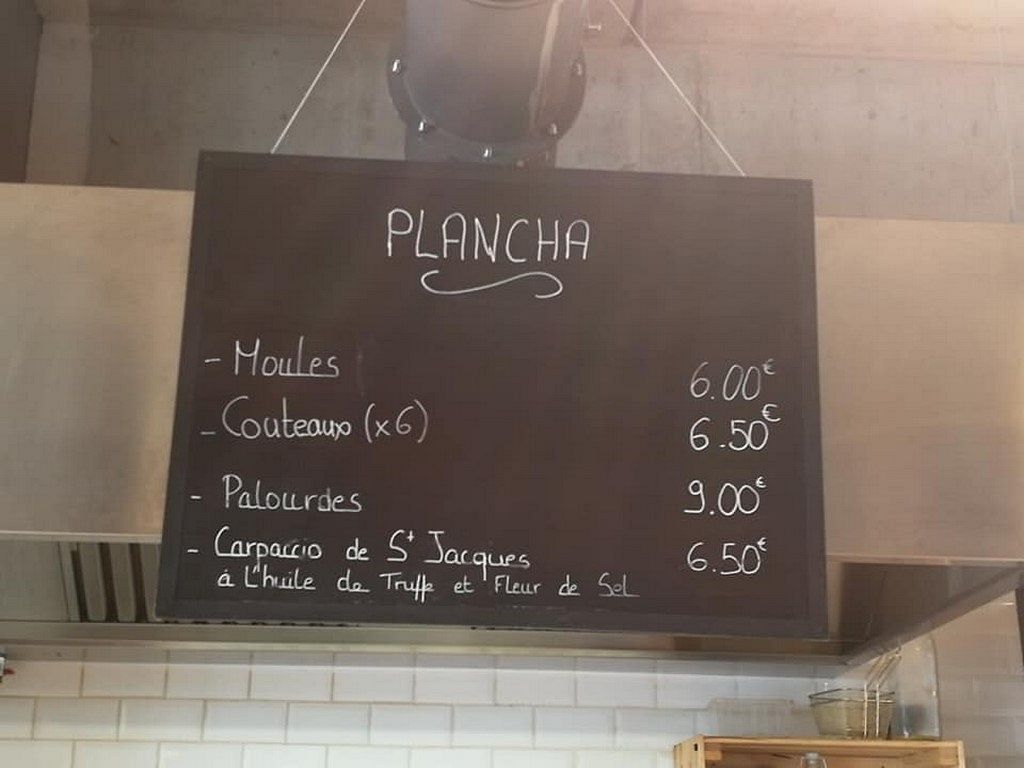 PLANCHA
- Moules 6.00€
- Couteaux (x6) 6.50€
- Palourdes 9.00€
- Carpaccio de St Jacques 6.50€
à L'huile de Truffe et Fleur de Sel